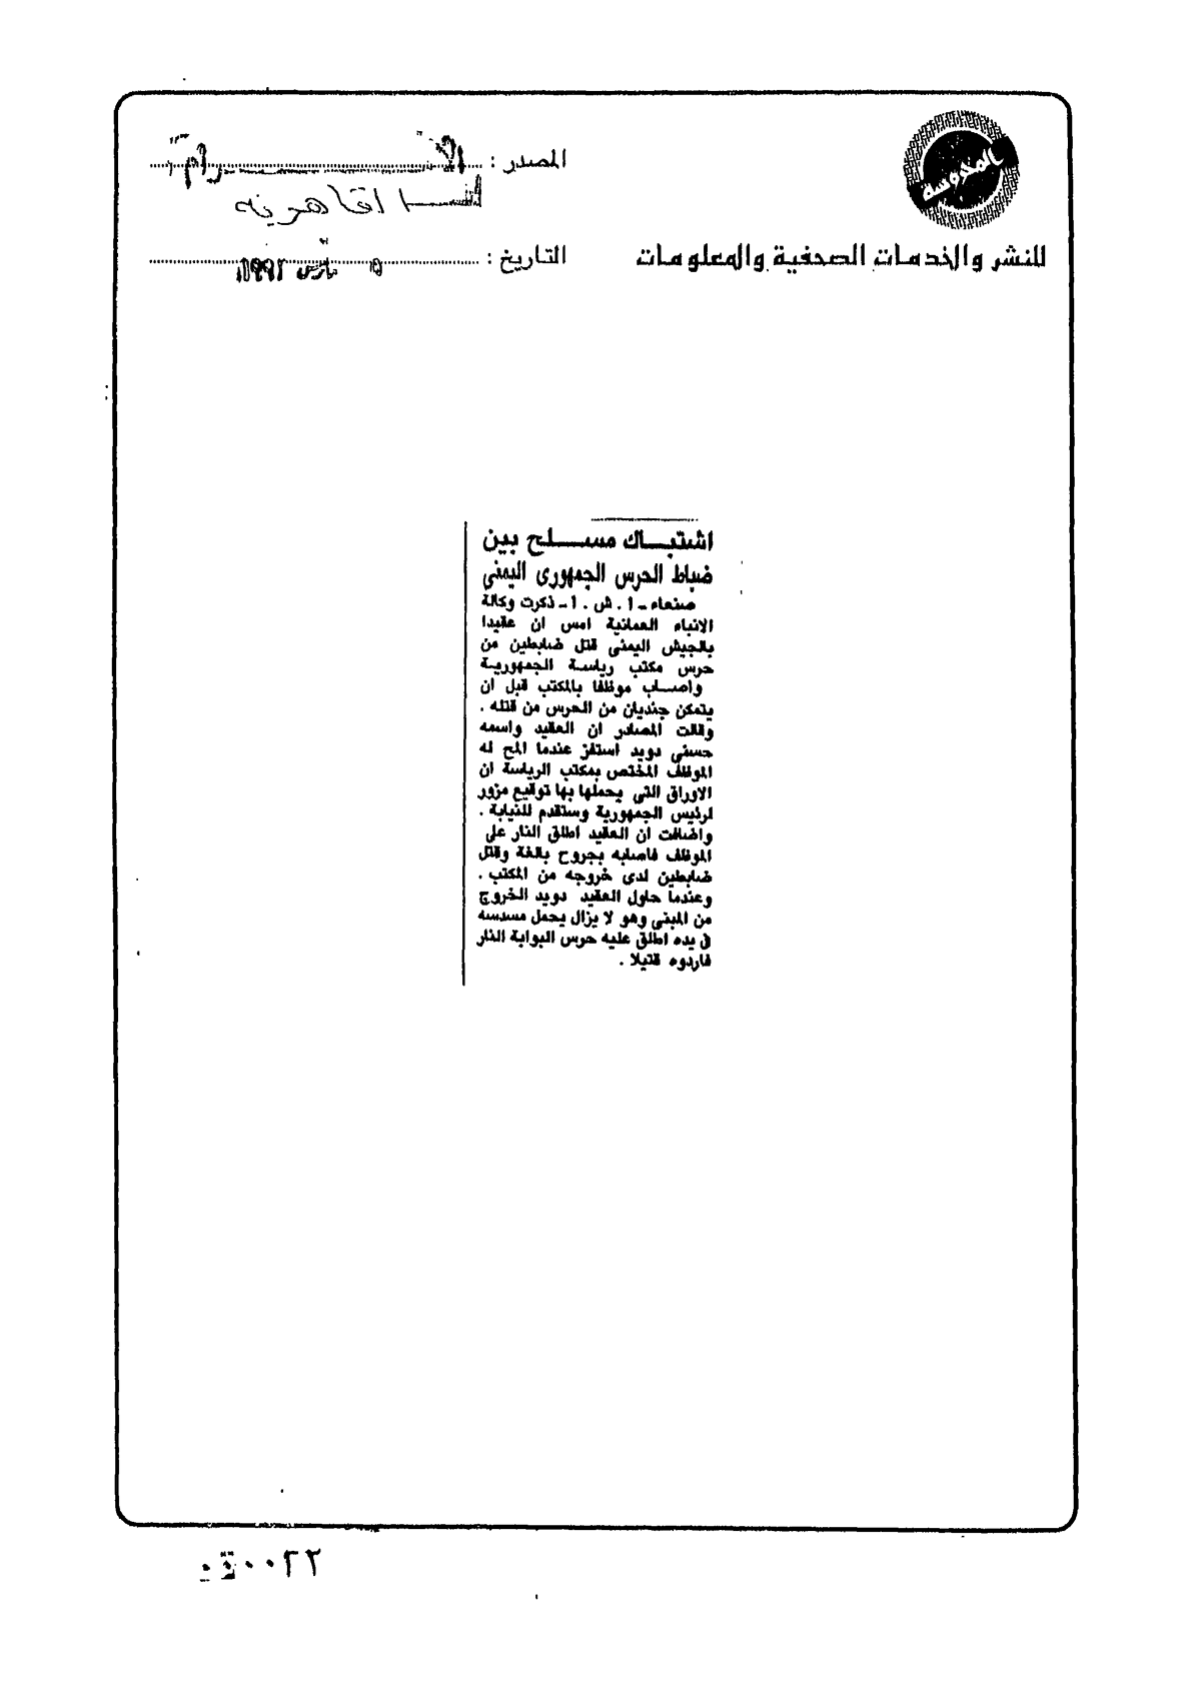 المحروسة
للنشر والخدمات الصحفية والمعلومات
المصدر :
القاهرية
التاريخ : ٥ مارس ١٩٩٢
اشتباك مسلح بين
ضباط الحرس الجمهورى اليمنى
صنعاء ـ ا . ش . ا ـ ذكرت وكالة
الانباء العمانية امس ان عقيدا
بالجيش اليمنى قتل ضابطين من
حرس مكتب رياسة الجمهورية
واصاب موظفا بالمكتب قبل ان
يتمكن جنديان من الحرس من قتله .
وقالت المصادر ان العقيد واسمه
حسنى دويد استفز عندما المح له
الموظف المختص بمكتب الرياسة ان
الاوراق التى يحملها بها توقيع مزور
لرئيس الجمهورية وستقدم للنيابة .
واضافت ان العقيد اطلق النار على
الموظف فاصابه بجروح بالغة وقتل
ضابطين لدى خروجه من المكتب .
وعندما حاول العقيد دويد الخروج
من المبنى وهو لا يزال يحمل مسدسه
فى يده اطلق عليه حرس البوابة النار
فاردوه قتيلا .